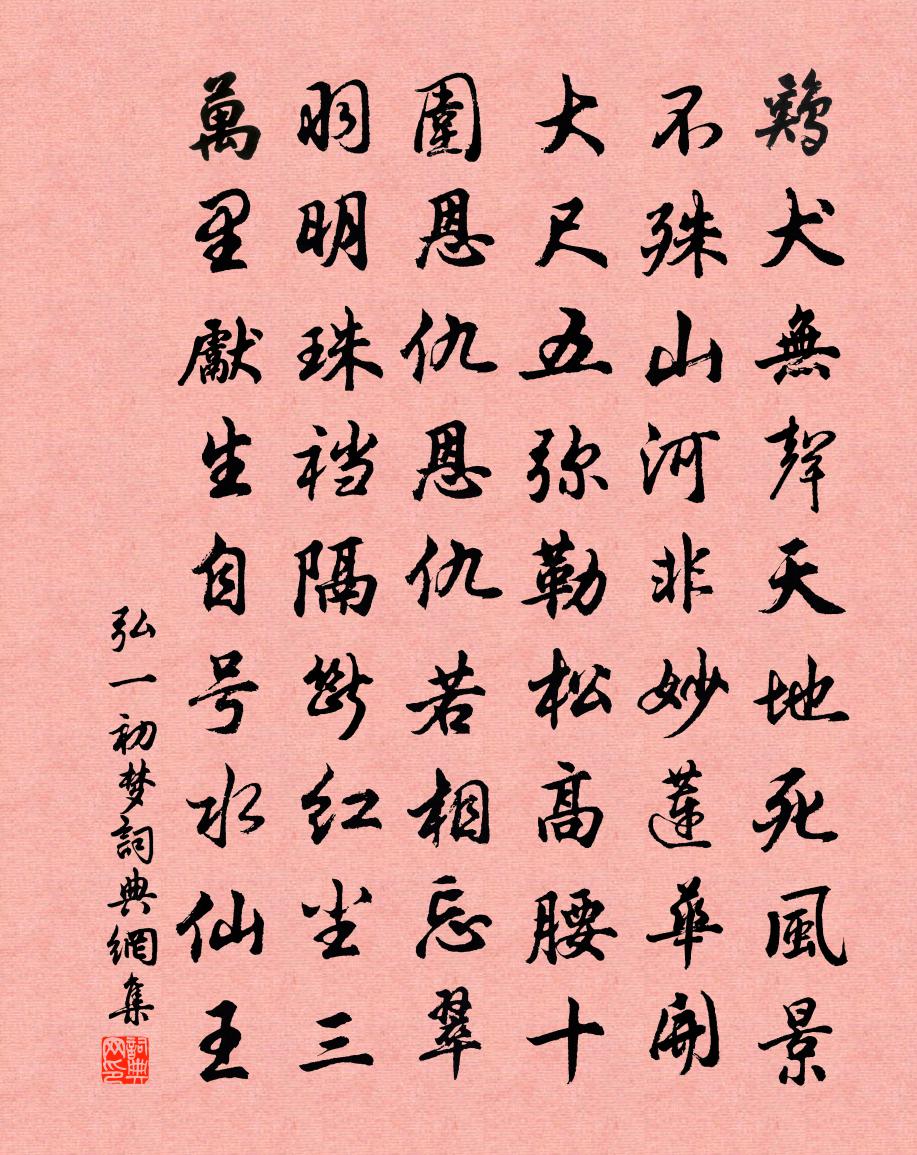 鷄犬無聲天地死風景
不殊山河非妙蓮華開
大尺五弥勒松高腰十
圍恩仇恩仇若相忘翠
羽明珠裆隔斷红尘三
萬里獻生自号水仙王
弘一初梦詞典網集
詞典网印